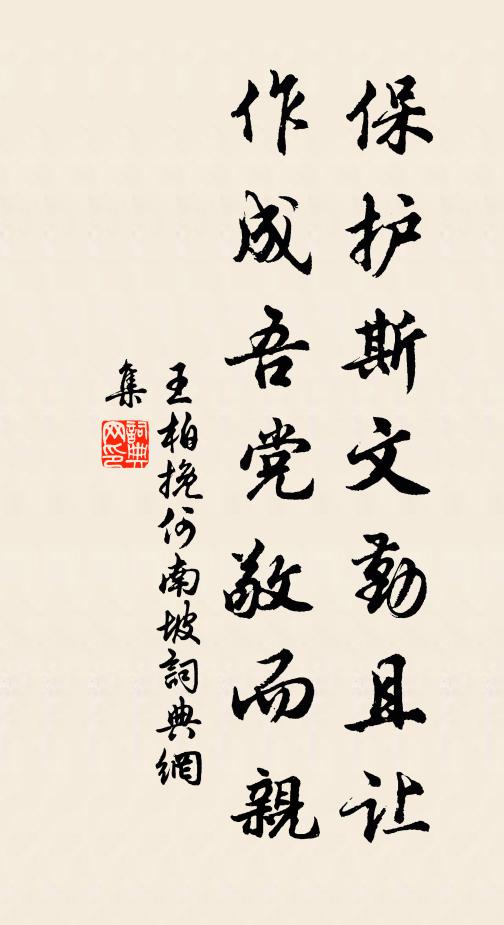 保护斯文勤且让
作成吾党敬而親
王柏挽何南坡詞典網
集
詞典网印